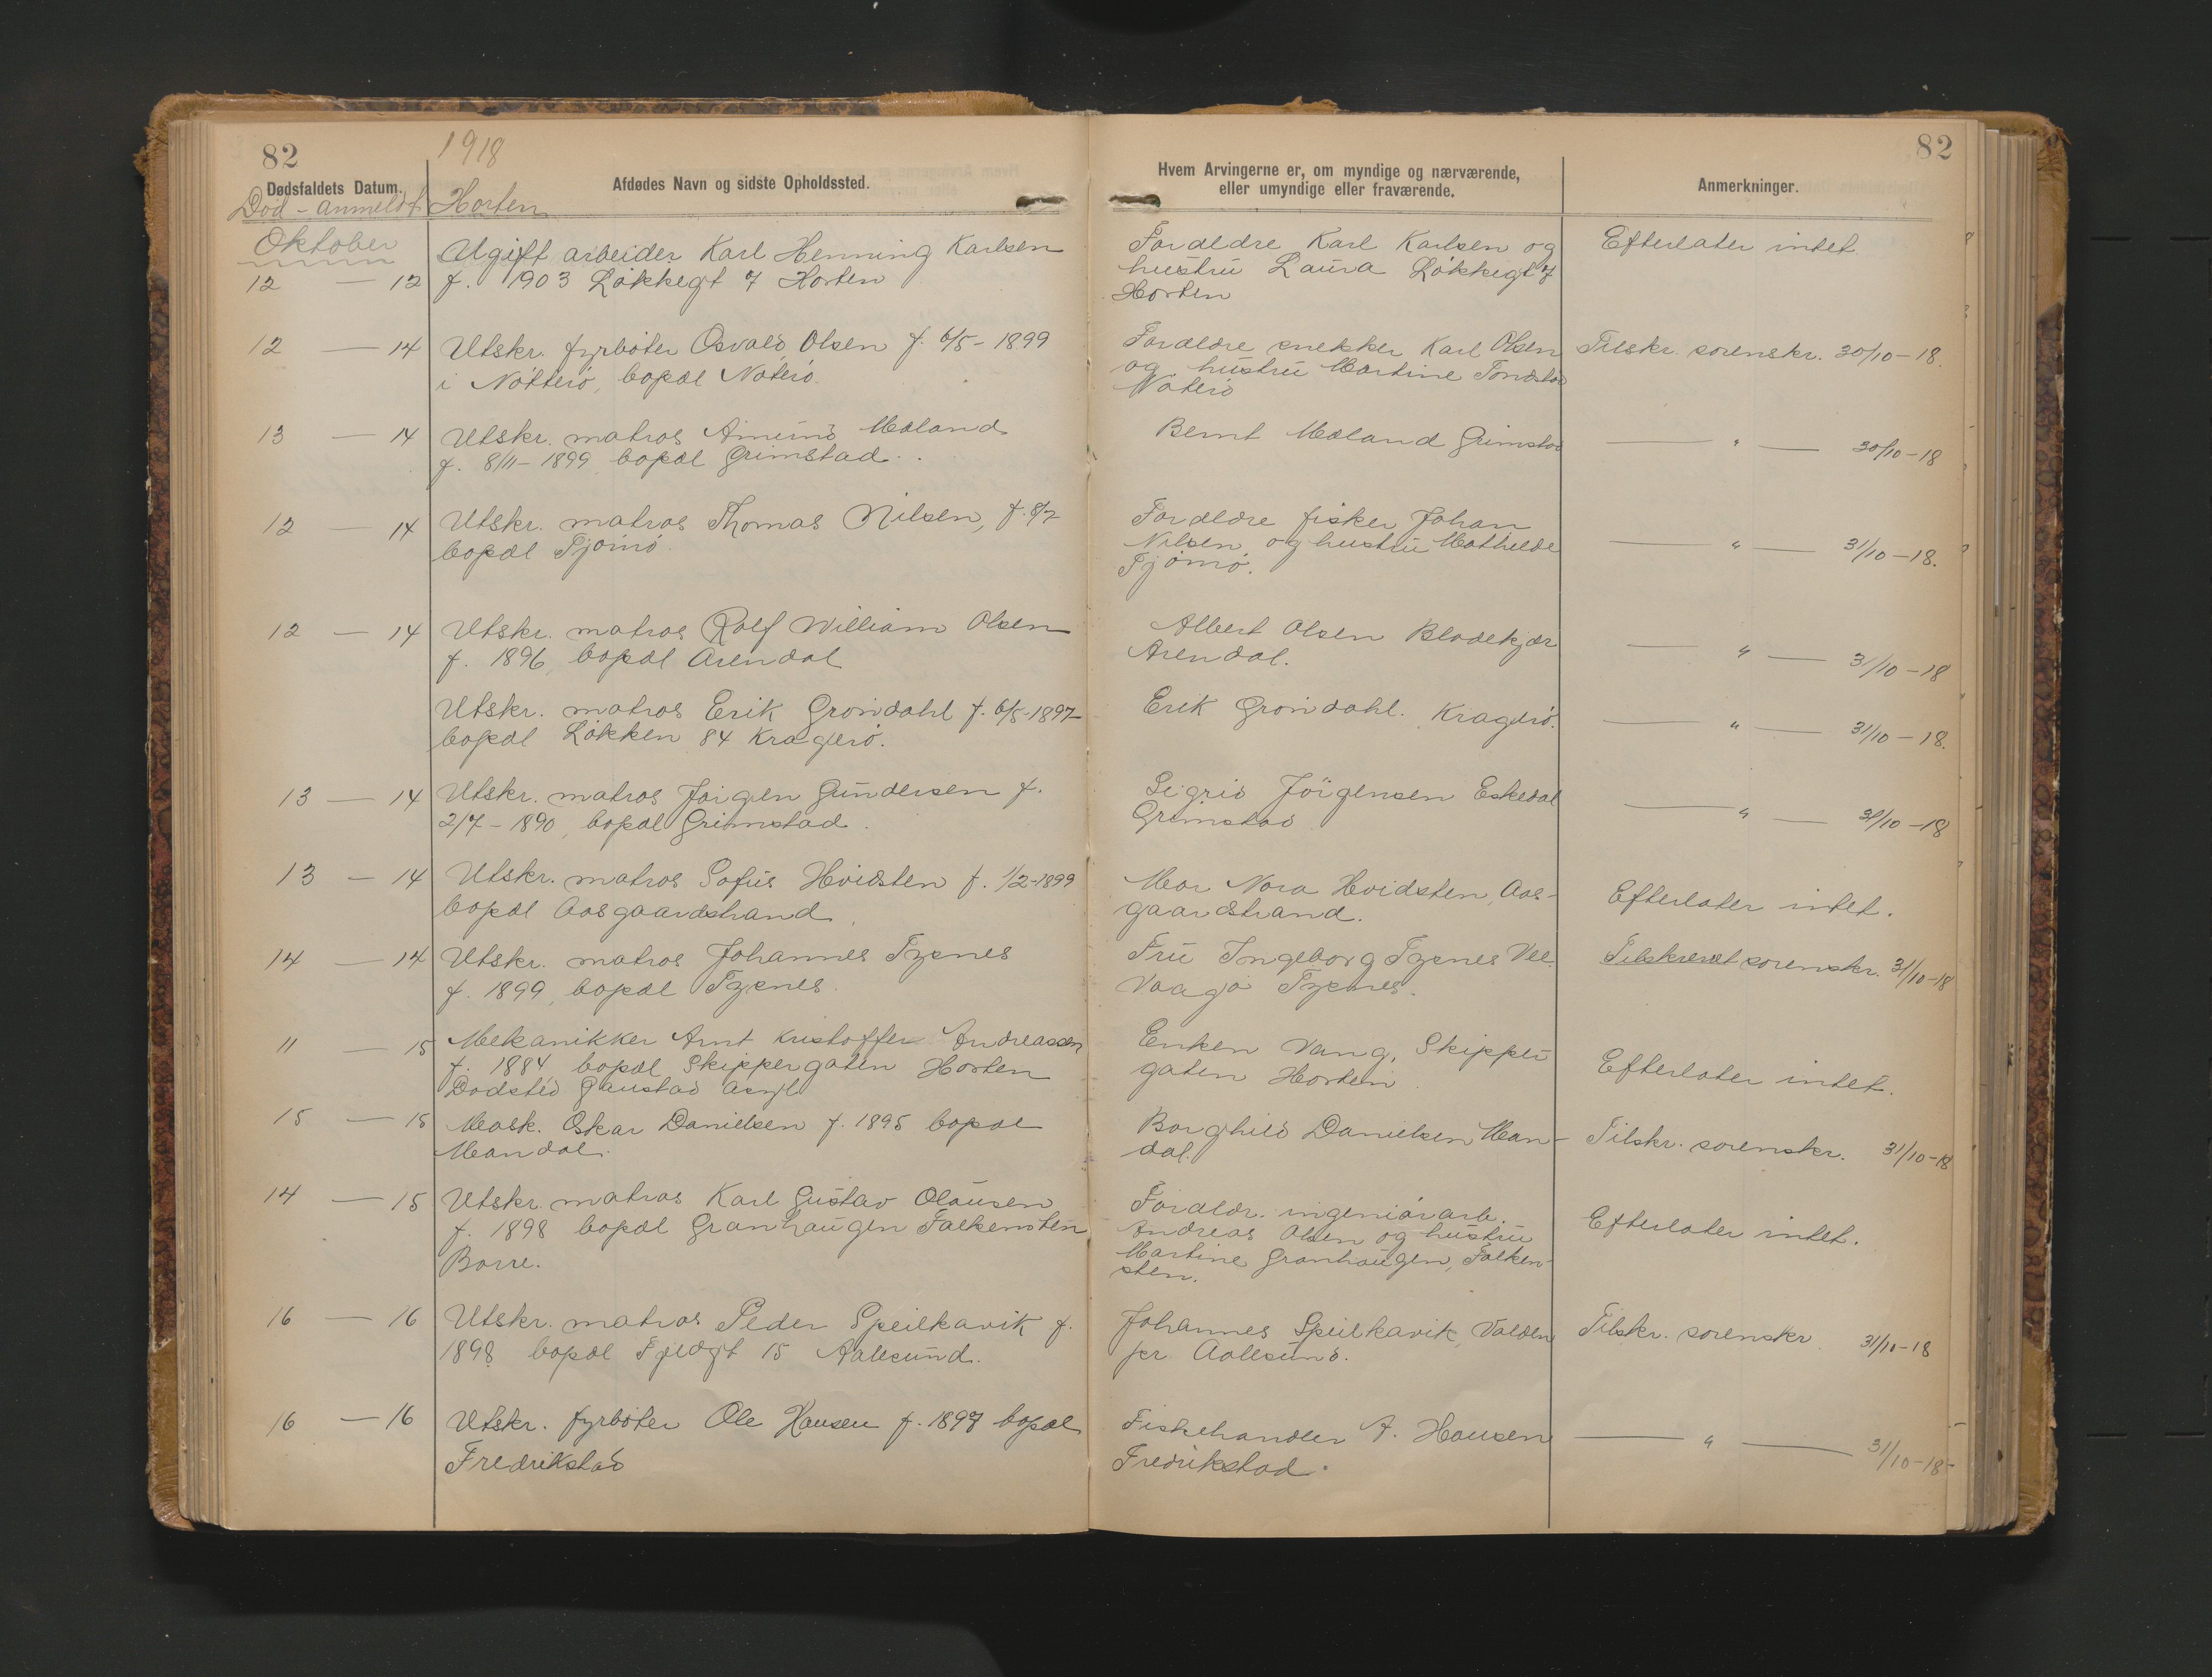 82
1918
82
Dødsfaldets Datum.
Afdødes Navn og sidste Opholdssted.
Hvem Arvingerne er, om myndige og nærværende,
eller umyndige eller fraværende.
Anmerkninger.
Død - anmeldt
Horten
Oktober
12 — 12
Ugift arbeider Karl Henning Karlsen
f. 1903 Løkkegt 7 Horten
Forældre Karl Karlsen og
hustru Laura Løkkegt 7
Horten
Efterlater intet
12 — 14
Utskr. fyrbøter Osvald Olsen f. 6/5 - 1899
i Nøtterø, bopæl Nøterø.
Forældre snekker Karl Olsen
og hustru Martine
Nøterø
Tilskr. sorenskr. 30/10 - 18.
13 — 14
Utskr. matros Amund Mæland
f. 8/11 - 1899 bopæl Grimstad.
Bernt Mæland Grimstad
— " — 30/10 - 18
12 — 14
Utskr. matros Thomas Nilsen, f. 8/7
bopæl Tjømø.
Forældre fisker Johan
Nilsen og hustru Mathilde
Tjømø.
— " — 31/10 - 18.
12 — 14
Utskr. matros Rolf William Olsen
f. 1896, bopæl Arendal
Albert Olsen Blødekjær
Arendal.
— " — 31/10 - 18
Utskr. matros Erik Grøndahl f. 6/5 - 1897
bopæl Løkken 84 Kragerø.
Erik Grøndahl. Kragerø.
— " — 31/10 - 18.
13 — 14
Utskr. matros Jørgen Gundersen f.
2/7 - 1890, bopæl Grimstad.
Sigrid Jörgensen Eskedal
Grimstad
— " — 31/10 - 18
13 — 14
Utskr. matros Sofus Hvidsten f. 1/2 - 1899
bopæl Aasgaardstrand.
Mor Nora Hvidsten, Aas-
gaardstrand.
Efterlater intet.
14 — 14
Utskr. matros Johannes Tzenes
f. 1899, bopæl Tzenes.
Fru Ingeborg Tzenes
Vaagø Tzenes.
Tilskrevet sorenskr. 31/10 - 18
11 — 15
Mekanikker Arnt Kristoffer Andreassen
f. 1884 bopæl Skippergaten Horten
Dødsted Gaustad Asyl
Enken Vang, Skipper
gaten Horten.
Efterlater intet.
15 — 15
Mask. Oskar Danielsen f. 1895 bopæl
Mandal.
Borghild Danielsen Man-
dal.
Tilskr. sorenskr. 31/10 - 18
14 — 15
Utskr. matros Karl Gustav Olausen
f. 1898 bopæl Granhaugen Falkensten
Borre.
Forældr. ingeniørarb.
Andreas Olsen og hustru
Martine Granhaugen, Falken-
sten.
Efterlater intet.
16 — 16
Utskr. matros Peder Speilkavik f.
1898 bopæl Fjeldgt 15 Aalesund.
Johannes Speilkavik, Valden
pr. Aalesund.
Tilskr. sorenskr. 31/10 - 18
16 — 16
Utskr. fyrbøter Ole Hansen f. 1897 bopæl
Fredrikstad
Fiskehandler A. Hansen
Fredrikstad.
— " — 31/10 - 18